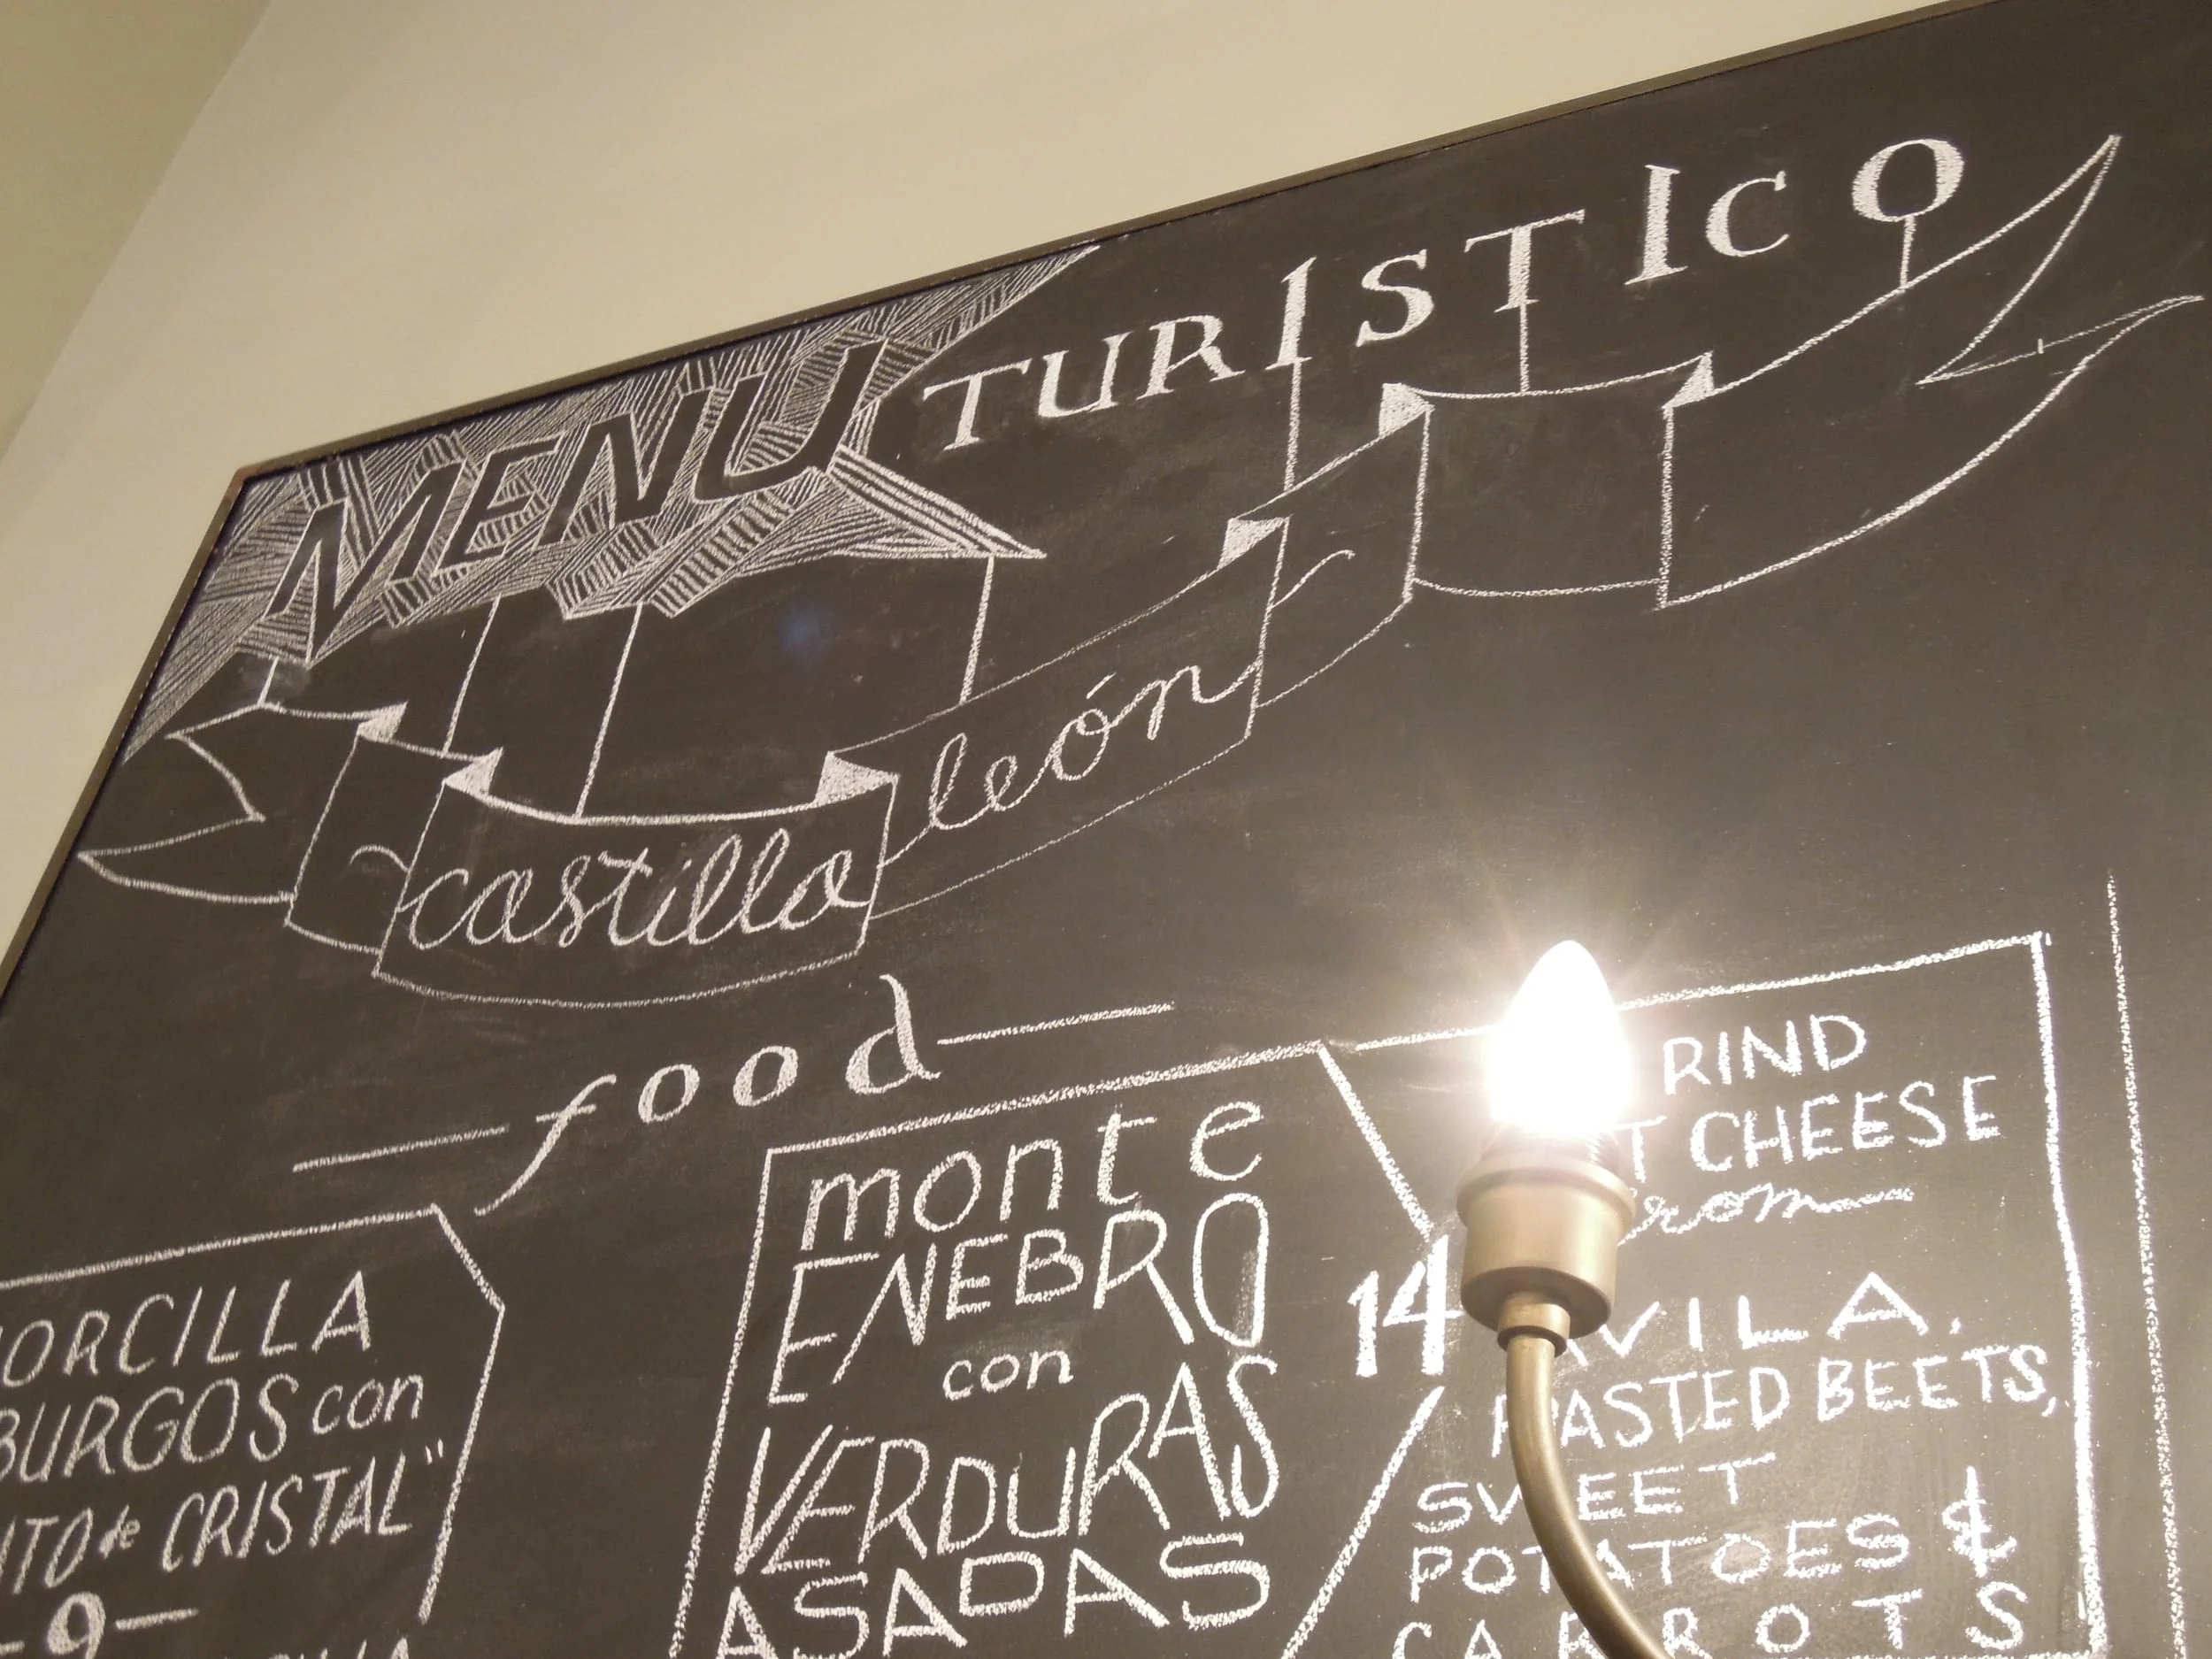 MENU TURISTICO
castilla león
food
BURGOS con
de CRISTAL"
-9-
monte
ENEBRO
con
VERDURAS
ASADAS
14
RIND
CHEESE
ROASTED BEETS,
SWEET
POTATOES &
CARROTS